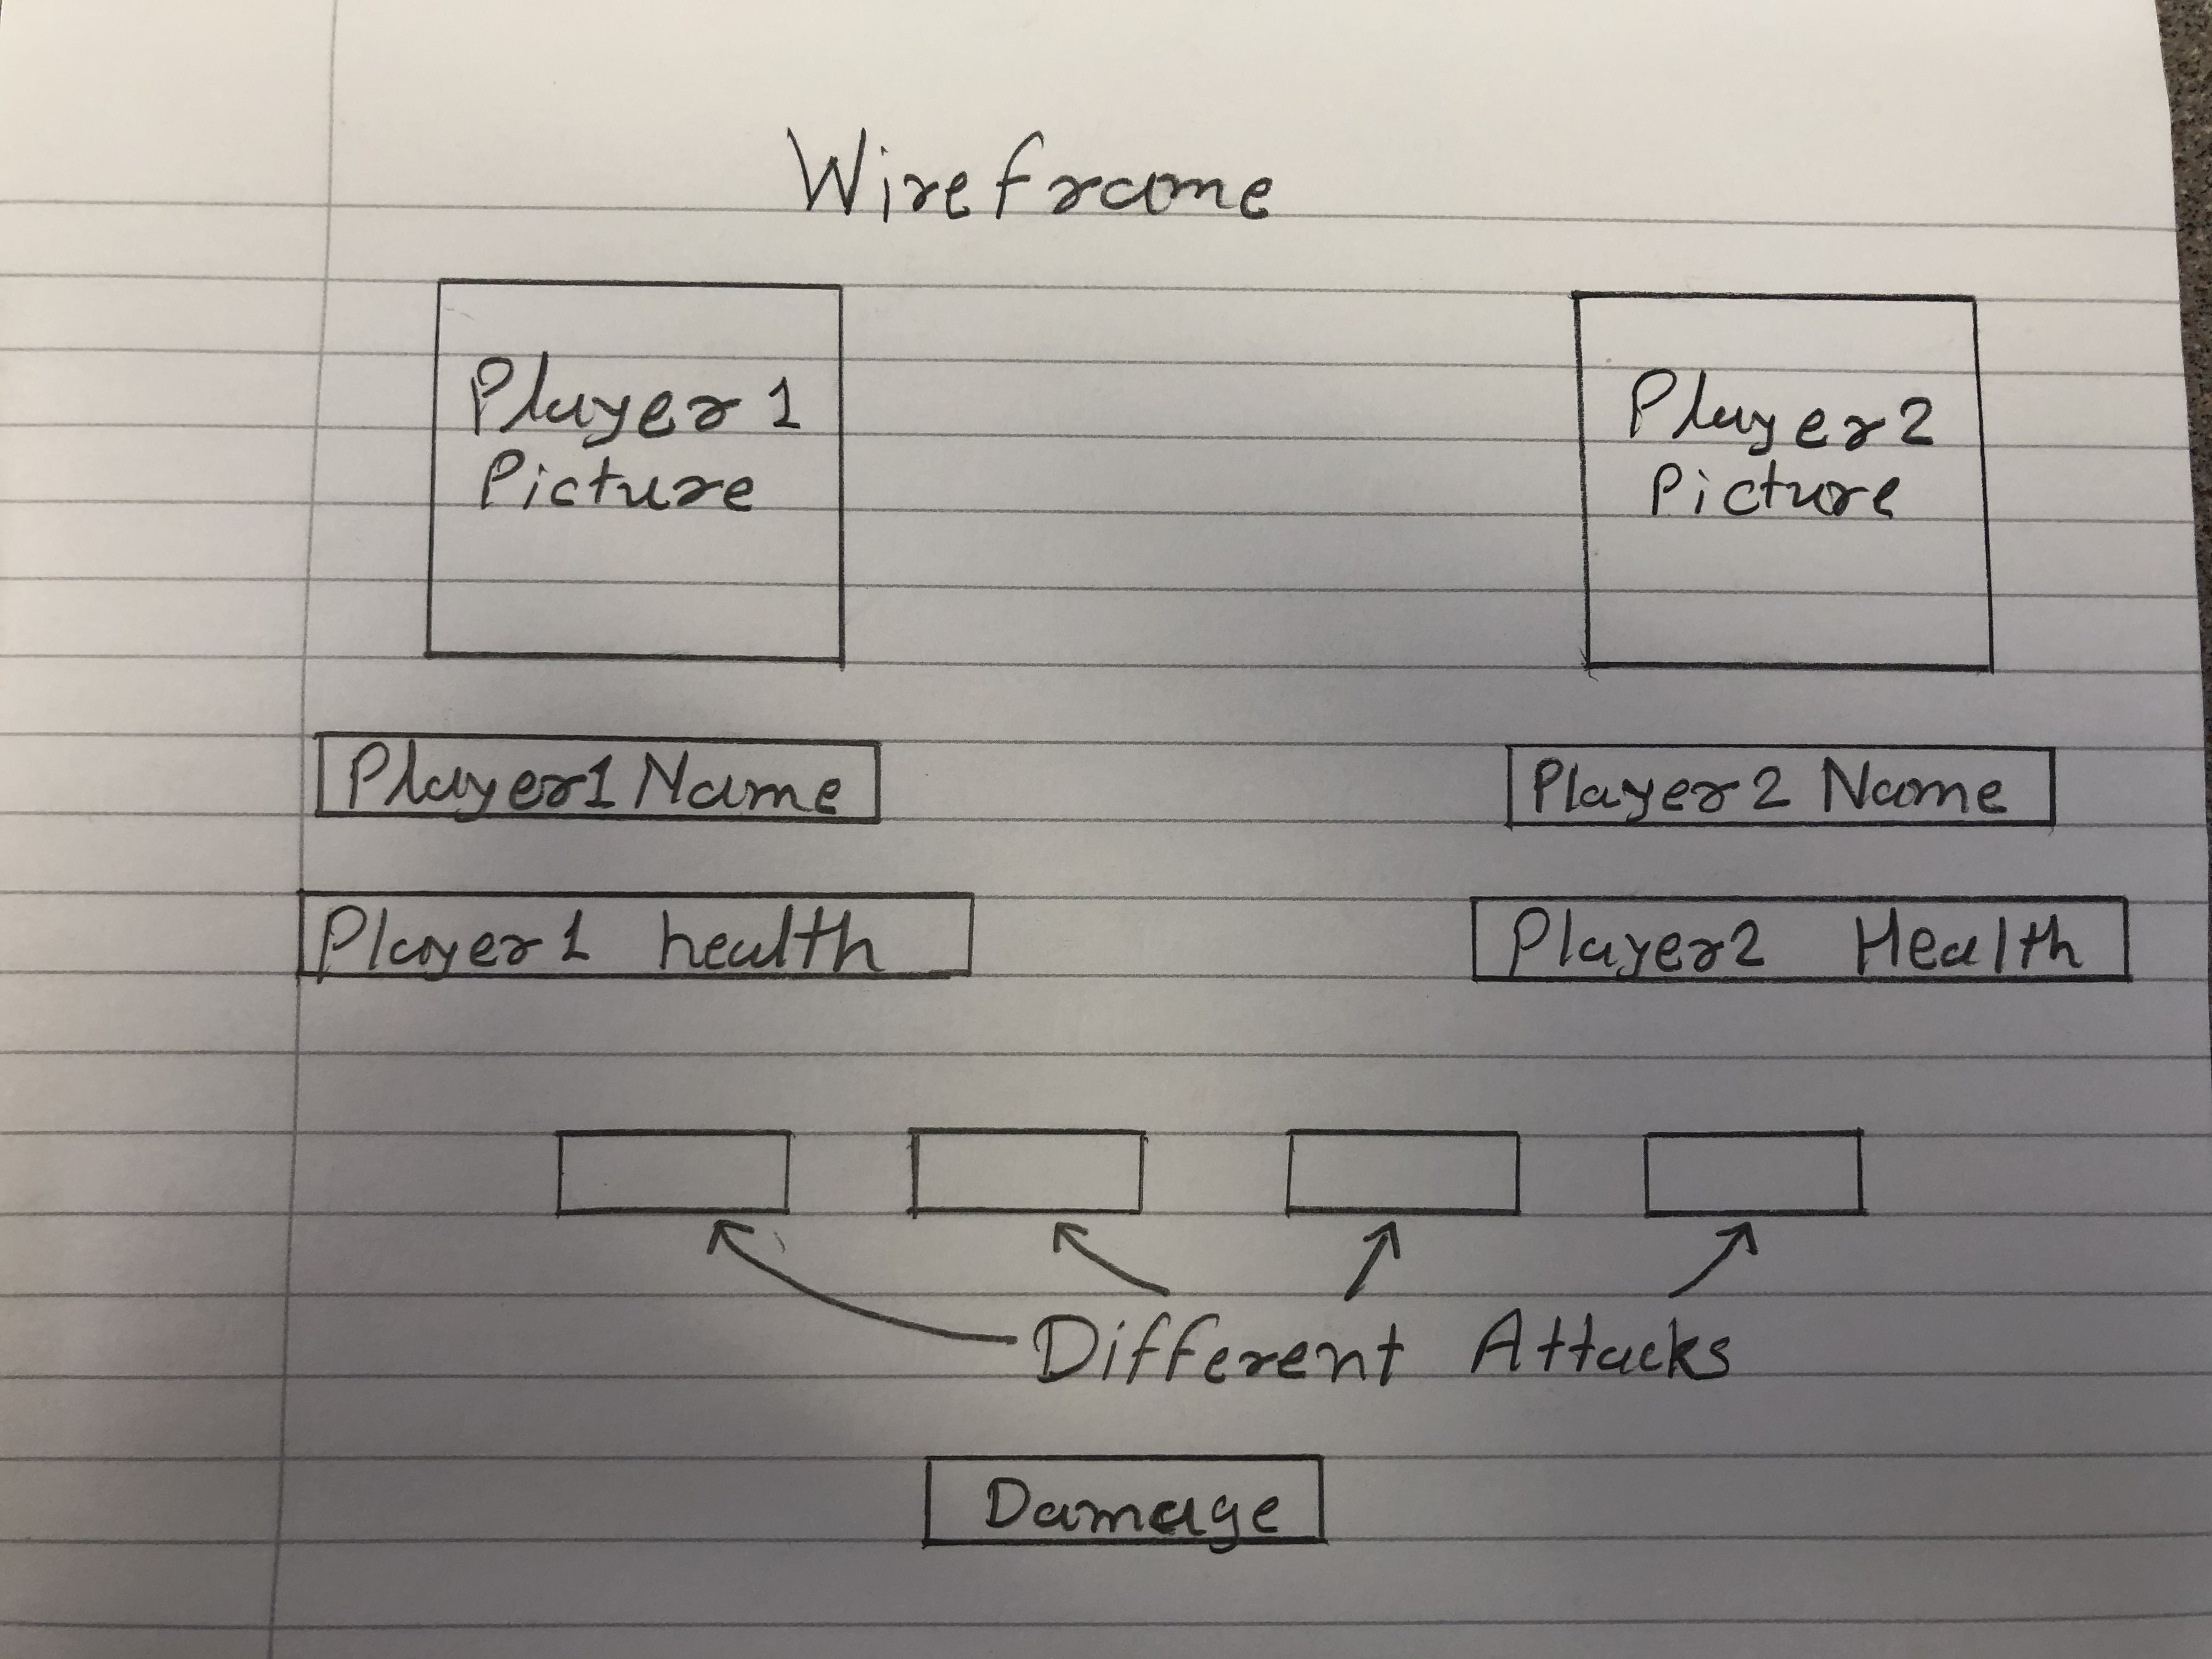 Wireframe
Player 1
Picture
Player 2
Picture
Player1 Name
Player 2 Name
Player 1 health
Player2 Health
Different Attacks
Damage